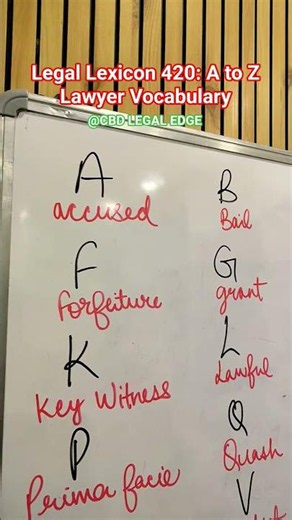 Legal Lexicon 420: A to Z
Lawyer Vocabulary
@CBD LEGAL EDGE
A B
accused Bail
F G
Forfeiture grant
K L
Key Witness Lawful
P Q
Prima facie Quash
V